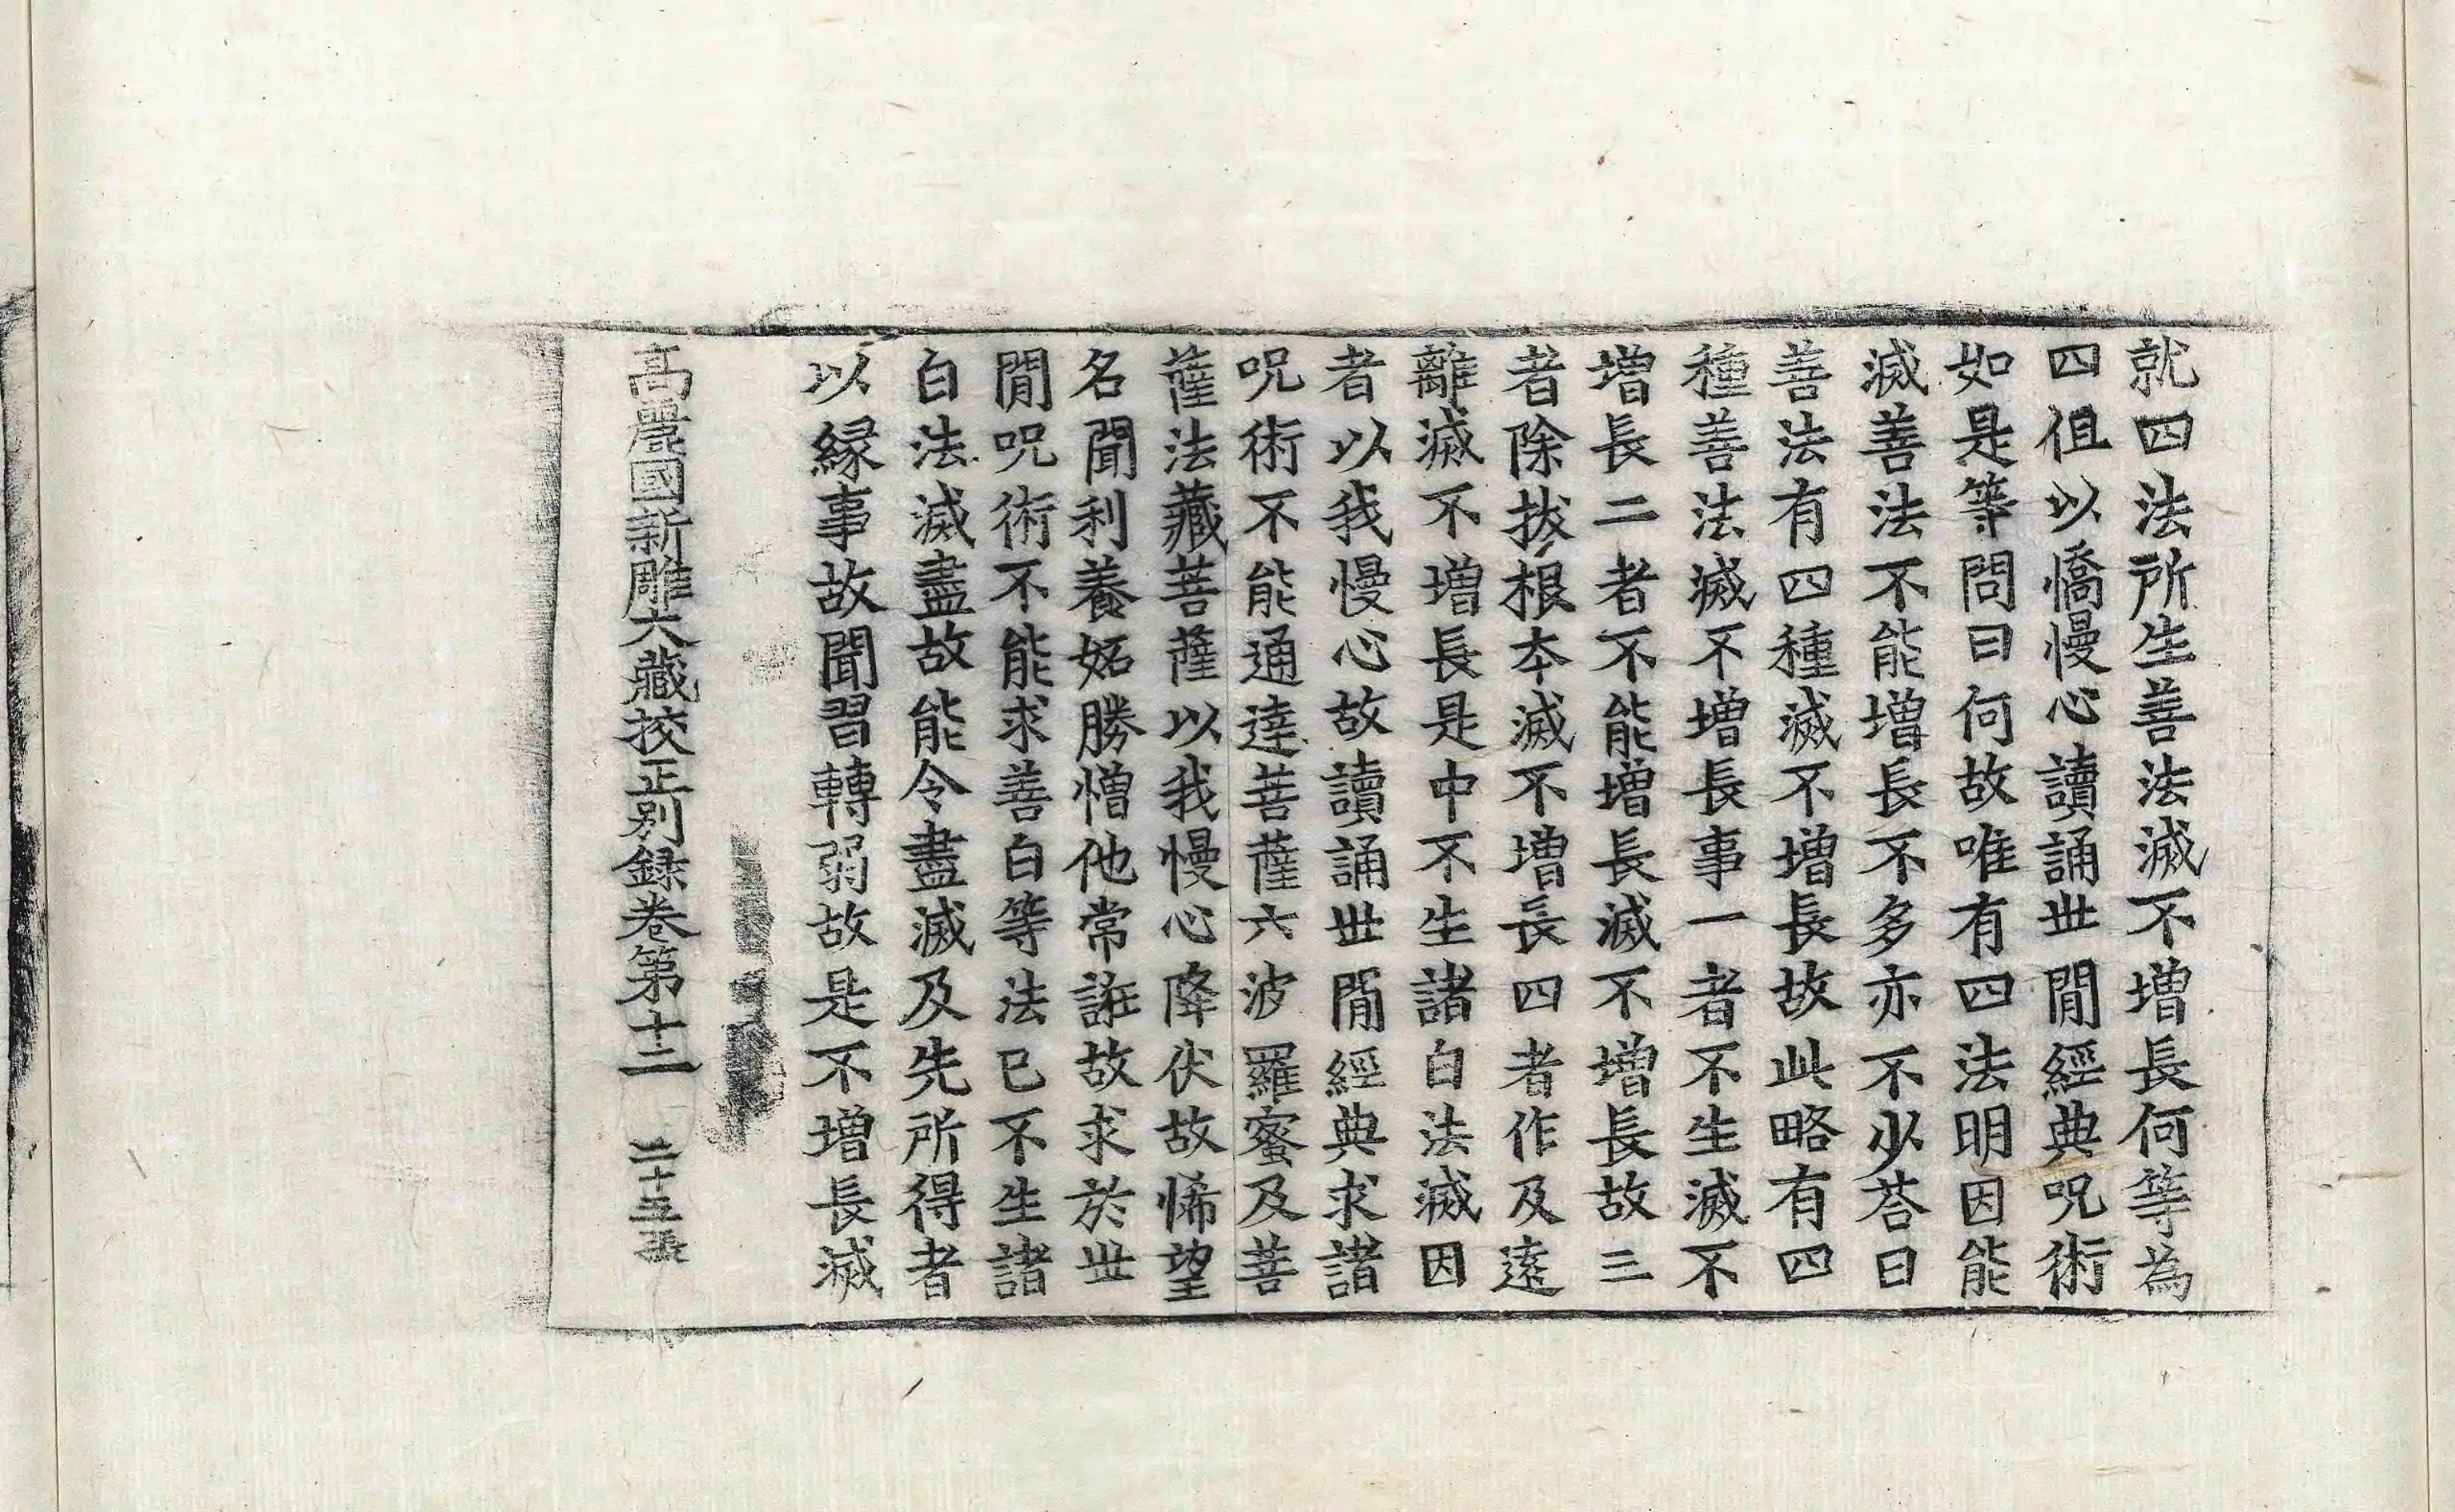 就四法所生善法滅不增長何等為
四但以憍慢心讀誦世閒經典呪術
如是等問曰何故唯有四法明因能
滅善法不能增長不多亦不少荅曰
善法有四種滅不增長故此略有四
種善法滅不增長事一者不生滅不
增長二者不能增長滅不增長故三
者除拔根本滅不增長四者作及遠
離滅不增長是中不生諸白法滅因
者以我慢心故讀誦世閒經典求諸
呪術不能通達菩薩六波羅蜜及菩
薩法藏菩薩以我慢心降伏故悕望
名聞利養妬勝憎他常誑故求於世
閒呪術不能求善白等法已不生諸
白法滅盡故能令盡滅及先所得者
以縁事故聞習轉弱故是不增長滅
高麗國新雕大藏挍正別錄卷第十二 二十五張